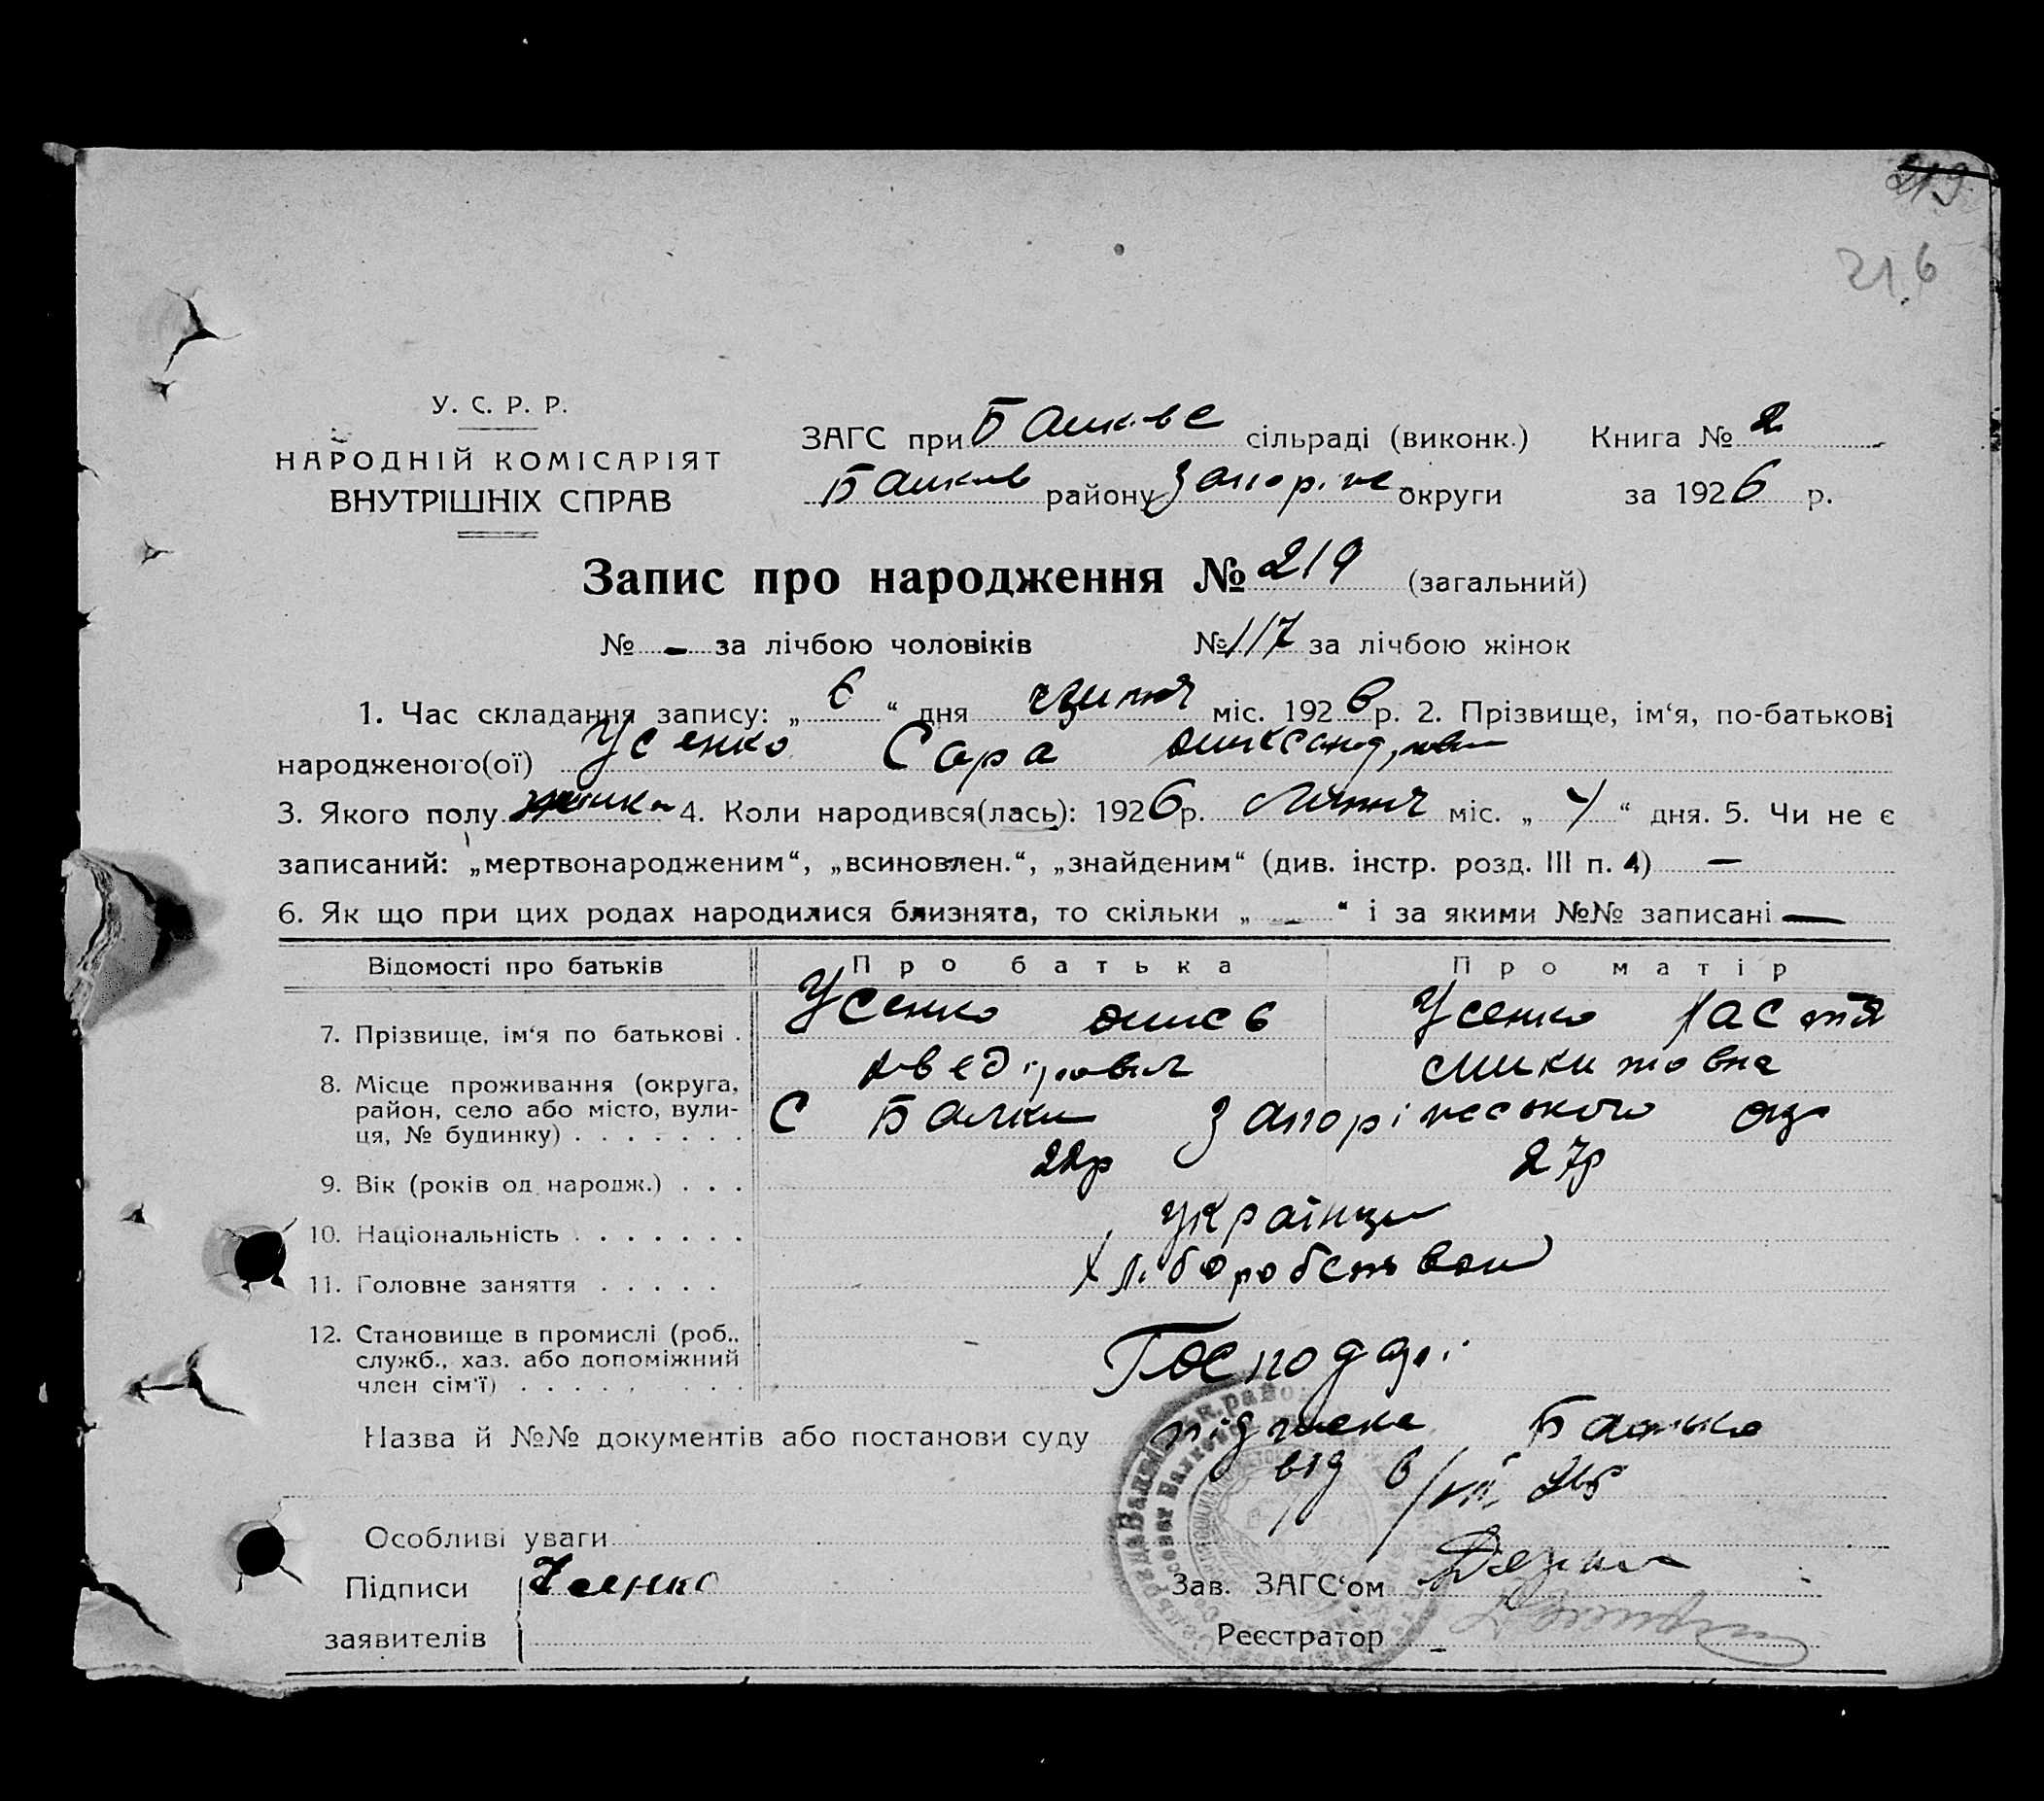 219
216
У. С. Р. Р.
НАРОДНІЙ КОМІСАРІЯТ
ВНУТРІШНІХ СПРАВ
ЗАГС при Балківс сільраді (виконк.) Книга № 2
Балків району Запоріж округи за 1926 р.
Запис про народження № 219 (загальний)
№ - за лічбою чоловіків № 117 за лічбою жінок
1. Час складання запису: „ 6 “ дня міс. 1926 р. 2. Прізвище, ім‘я, по-батькові
народженого(ої) Усенко Сара
3. Якого полу жінка 4. Коли народився(лась): 1926 р. Липня міс. „ 4 “ дня. 5. Чи не є
записаний: „мертвонародженим“, „всиновлен.“, „знайденим“ (див. інстр. розд. III п. 4) —
6. Як що при цих родах народилися близнята, то скільки „ - “ і за якими №№ записані —
Відомості про батьків Про батька Про матір
7. Прізвище, ім‘я по батькові . Усенко Усенко Настя
8. Місце проживання (округа, Микитовна
район, село або місто, вули- С Балки Запоріжського окр
ця, № будинку) . . . . . . .
9. Вік (років од народж.) . . . 22р 27р
10. Національність . . . . . . . українці
11. Головне заняття . . . . . Хліборобством
12. Становище в промислі (роб., Господарі
служб., хаз. або допоміжний
член сім‘ї) . . . . . . . . .
Назва й №№ документів або постанови суду Батька
від 6/VII 26
Особливі уваги
Підписи Усенко Зав. ЗАГС‘ом
заявителів Реєстратор -